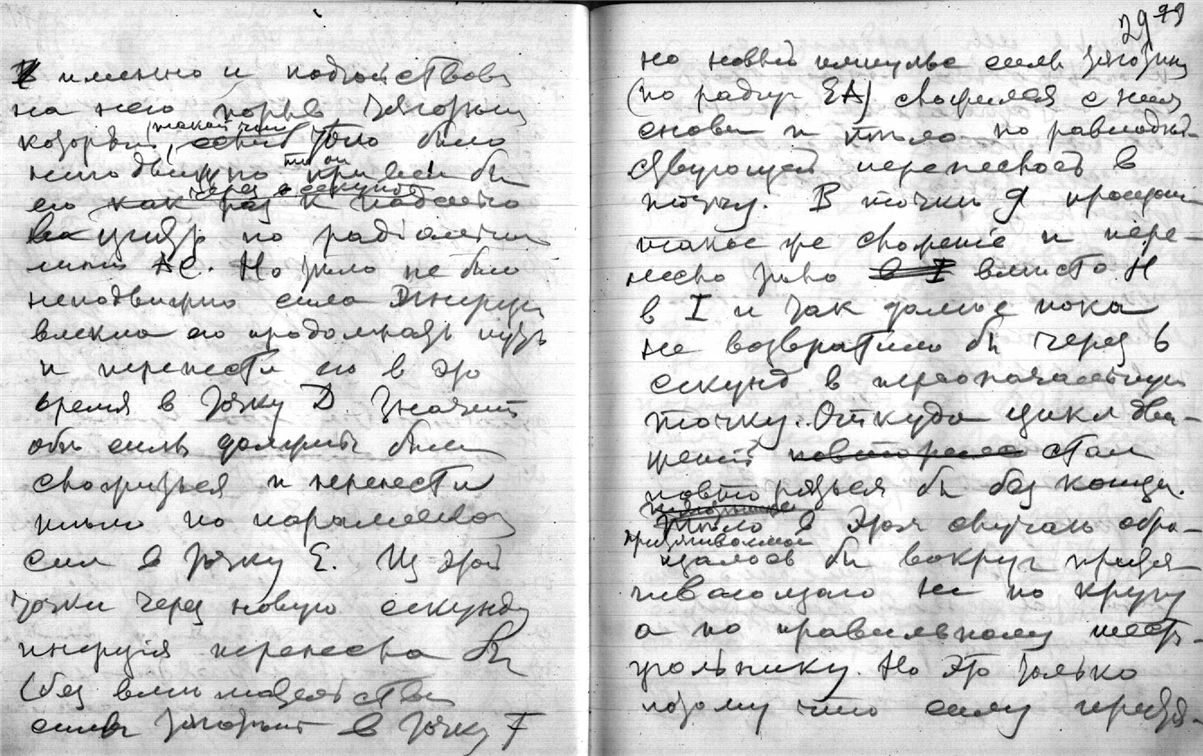 именно и подействовал
на него порыв тяготения
который, такой что если тело было
неподвижно, то он привел бы
его как раз к через секунду
по радиальной
линии АС. Но тело не было
неподвижно сила Инерции
влекла его продолжать путь
и перенести его в это
время в точку D. Значит
обе силы должны были
сложиться и перенести
тело по параллелогр
сил в точку Е. Из этой
точки через новую секунду
инерция перенесла бы
(без вмешательства
силы тяготения в точку F
29 99
но новый импульс силы тяготения
(по радиус ЕА) сложился с нею
снова и тело по равнодей
ствующей перенесло в
точку. В точке g произош
такое же сложение и пере-
несло тело в I вместо H
в I и так далее пока
не возвратило бы через 6
секунд в первоначальную
точку. Откуда цикл дви-
жений повторялся стал
повторяться бы без конца.
Тело в этом случае обра-
притягиваемое
щалось бы вокруг притя
гивающаго не по кругу
а по правильному шест
угольнику. Но это только
потому что силу притя-